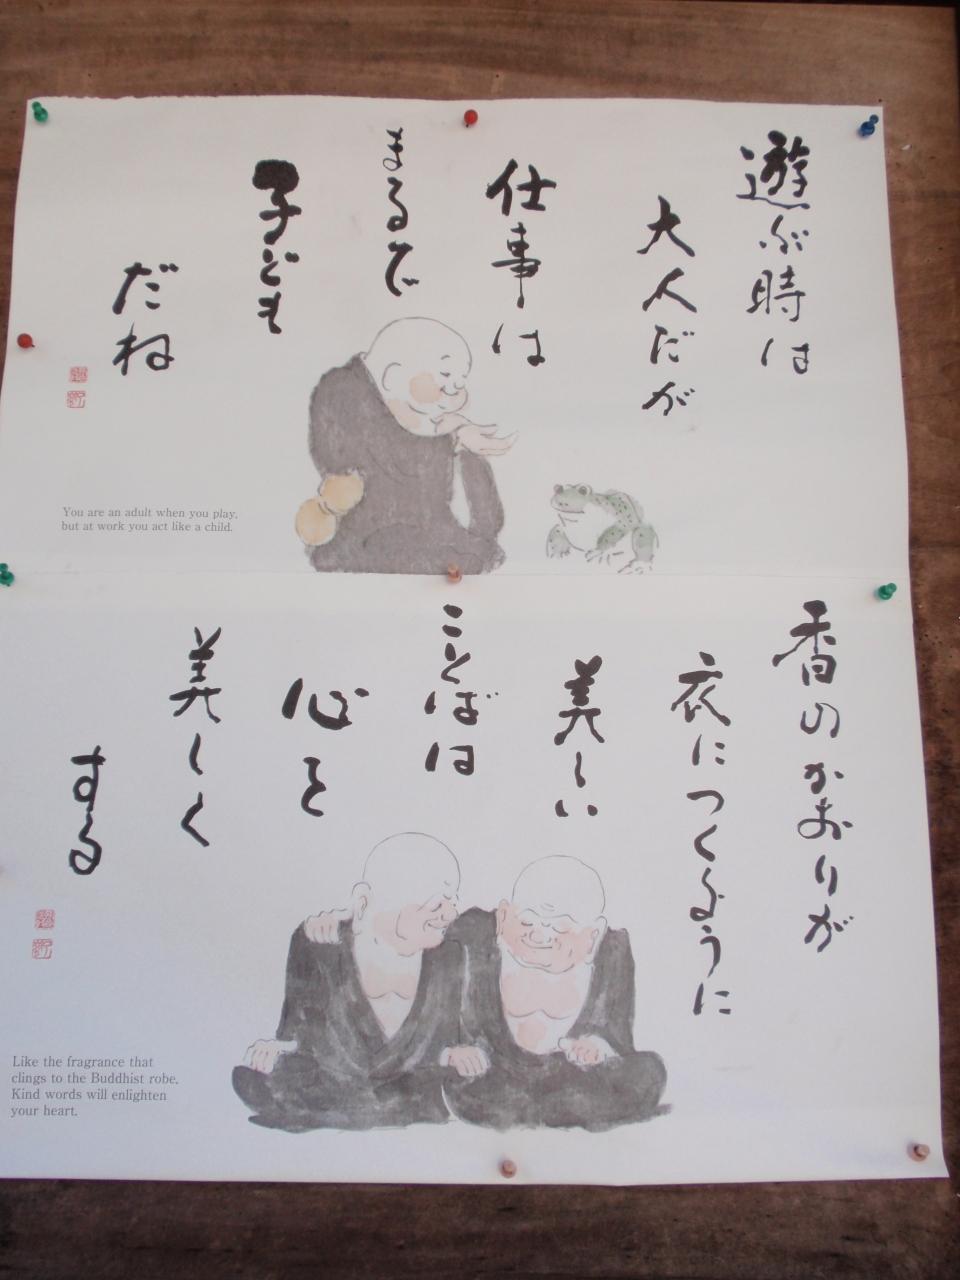 遊ぶ時は
大人だが
仕事は
まるで
子ども
だね
You are an adult when you play,
but at work you act like a child.
香のかおりが
衣につくように
美しい
ことばは
心を
美しく
する
Like the fragrance that
clings to the Buddhist robe,
Kind words will enlighten
your heart.